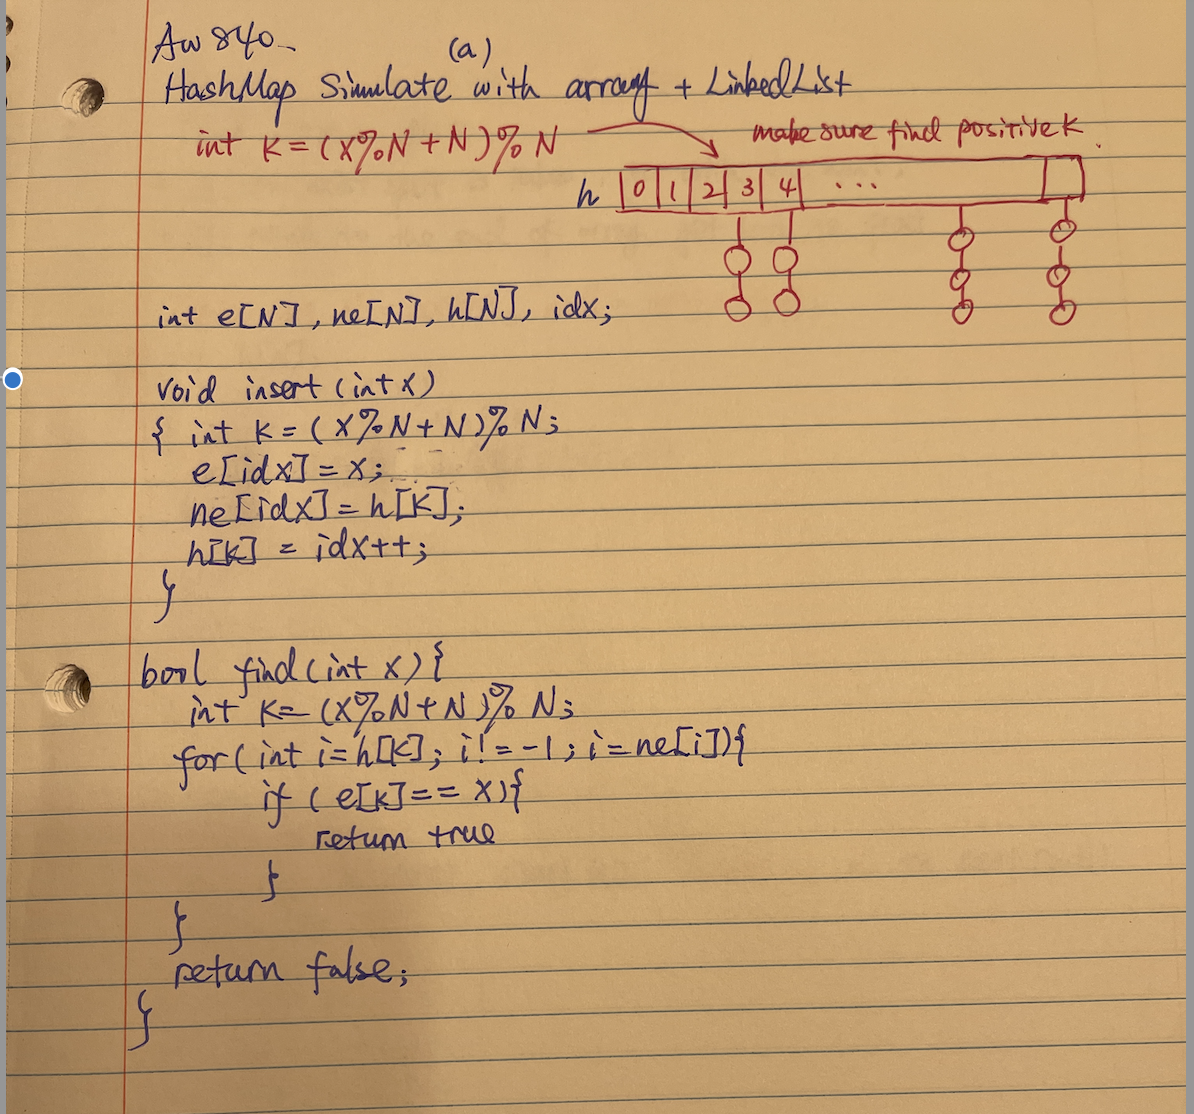 AW 840.
(a)
HashMap Simulate with array + LinkedList
int k = (x%N + N)%N
make sure find positive k.
h 0 1 2 3 4 ...
int e[N], ne[N], h[N], idx;
void insert (int x)
{ int k = (x%N + N)%N;
e[idx] = x;
ne[idx] = h[k];
h[k] = idx++;
}
bool find(int x){
int k = (x%N + N)%N;
for(int i=h[k]; i!=-1; i=ne[i]){
if (e[k] == x){
return true
}
}
return false;
}